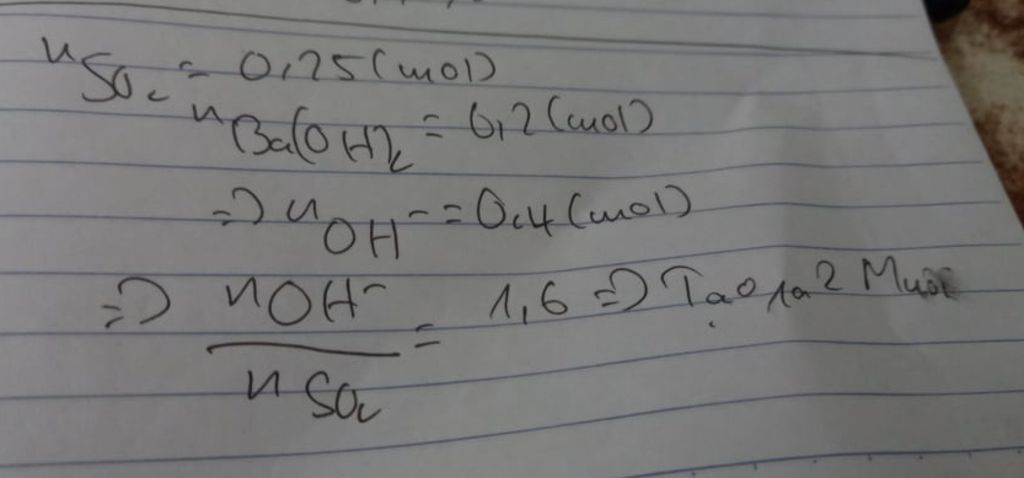 nSO2 = 0,25 (mol)
nBa(OH)2 = 0,2 (mol)
=> nOH- = 0,4 (mol)
=> nOH- / nSO2 = 1,6 => Tạo ra 2 Muối